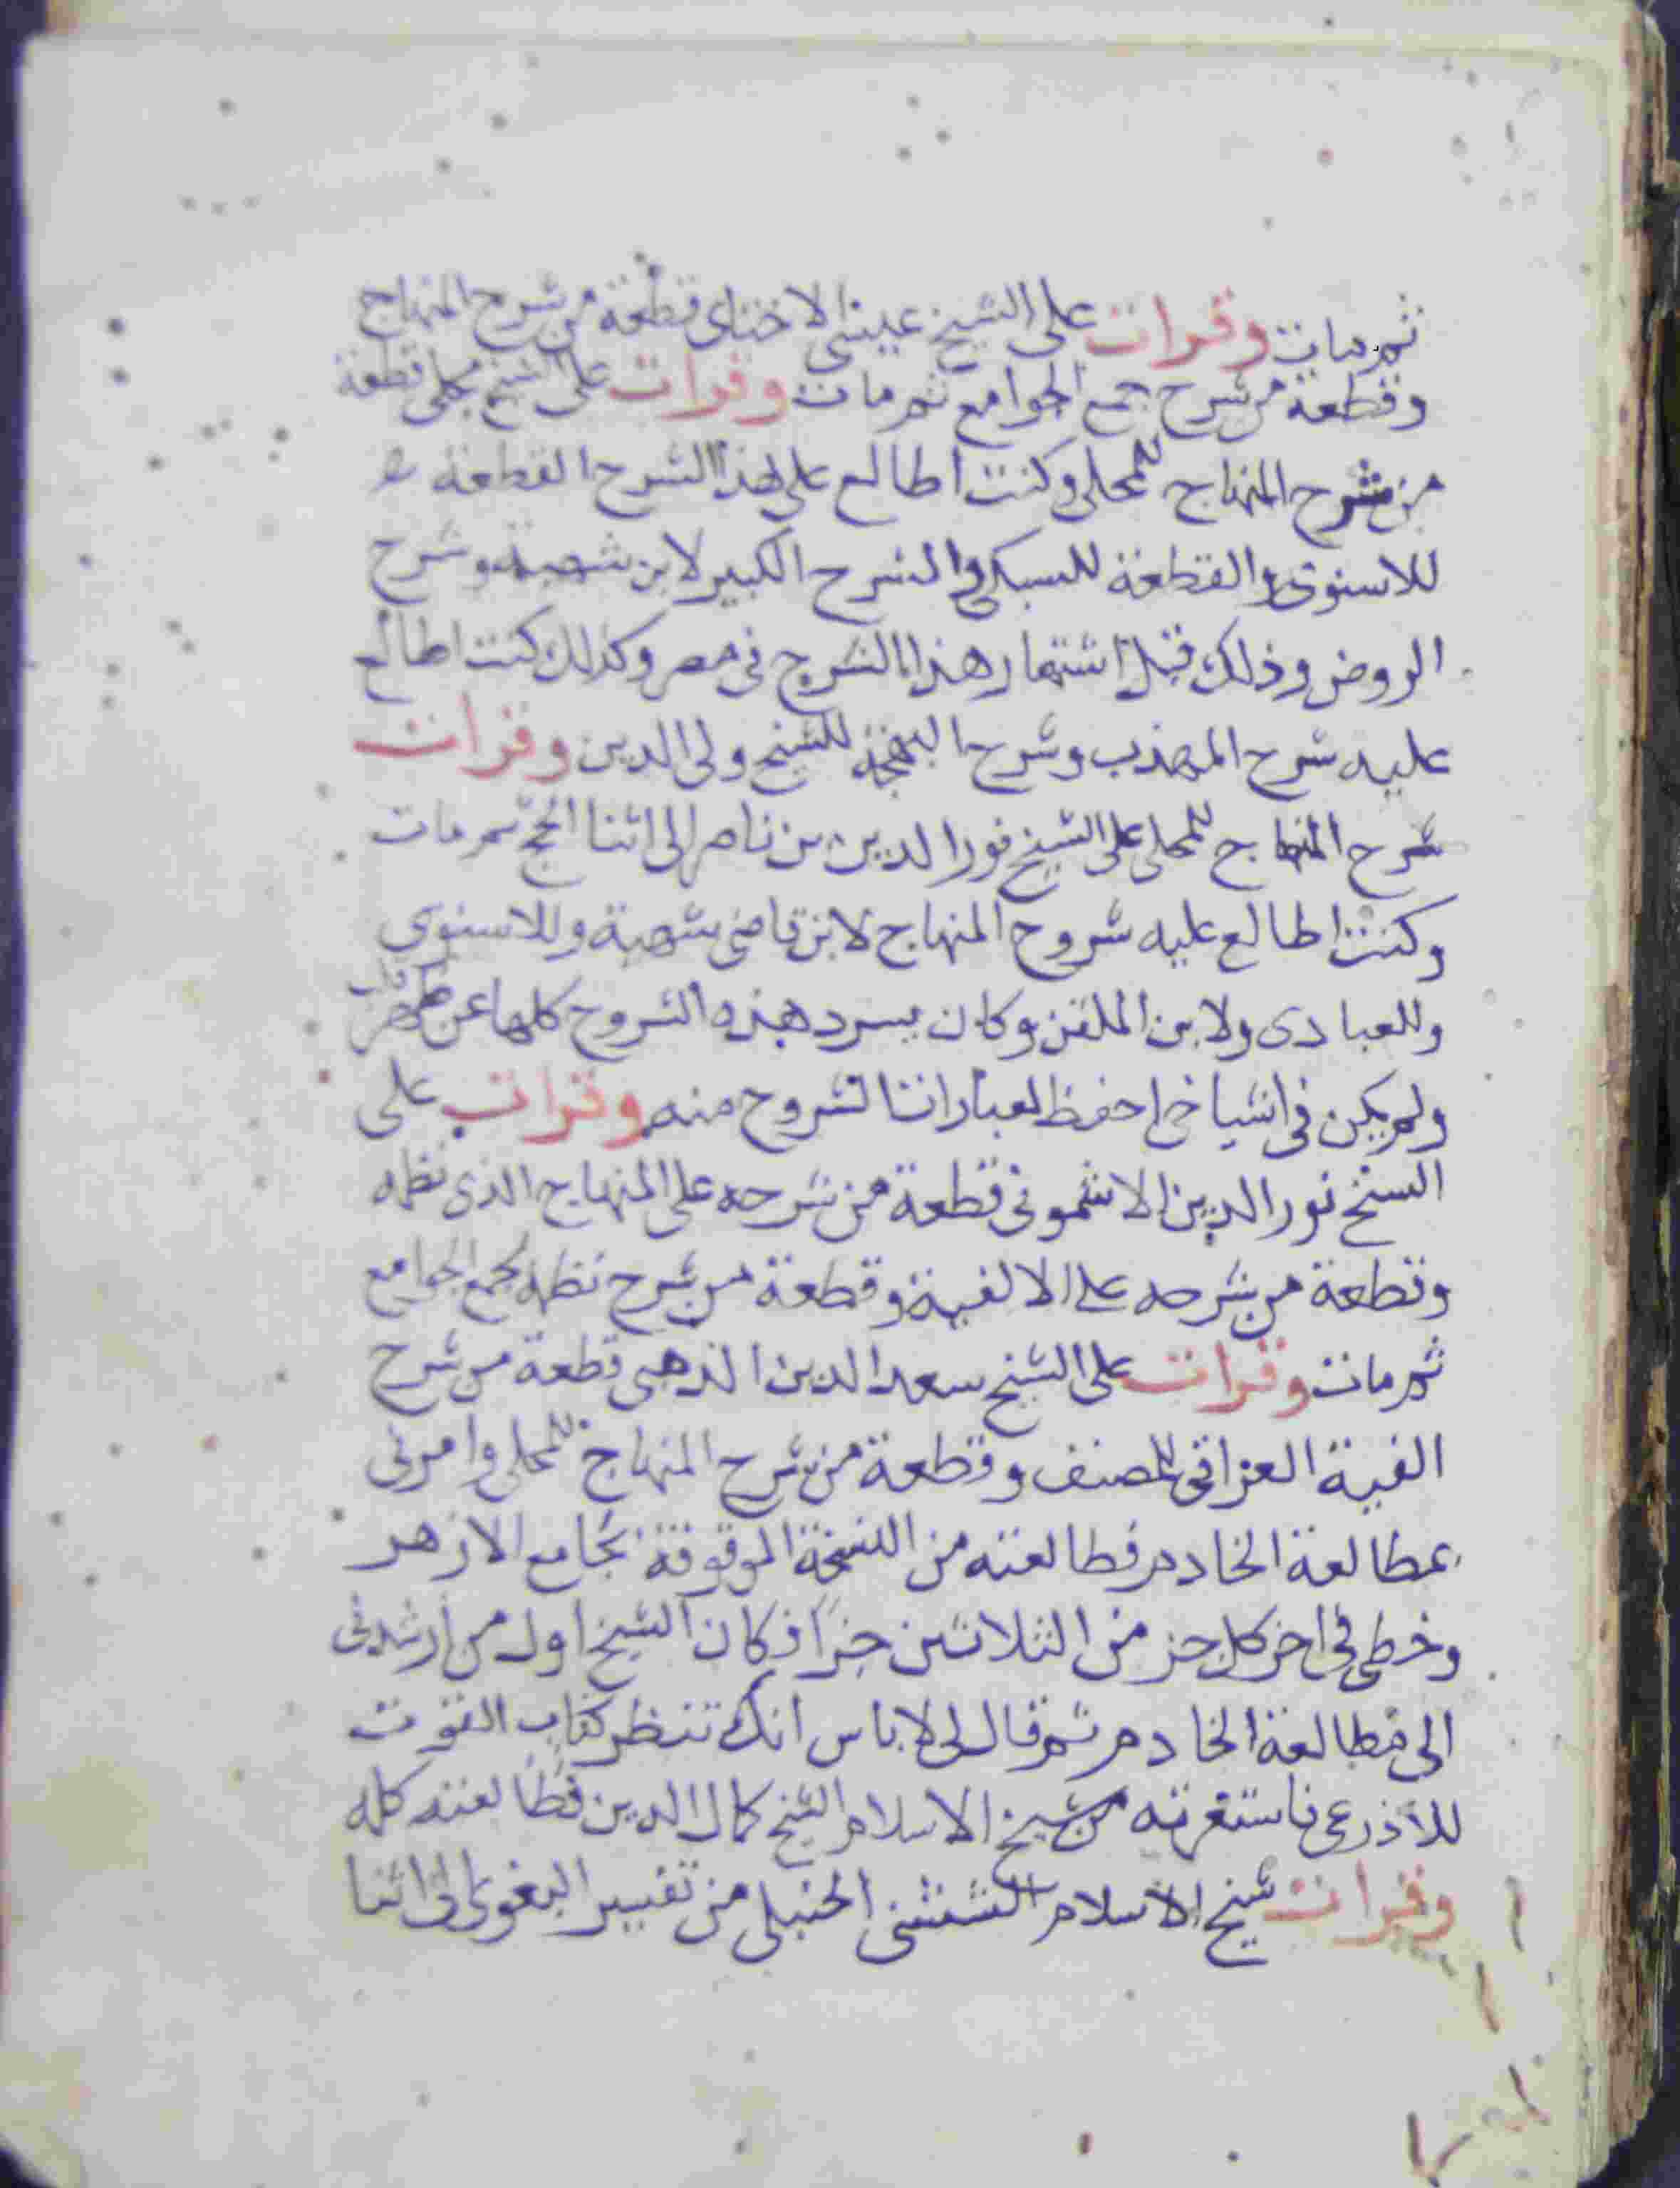 ثم مات وقرات على الشيخ عيسى الاخناى قطعة من شرح المنهاج
وقطعة من شرح جمع الجوامع ثم مات وقرات على الشيخ مجلى قطعة
من شرح المنهاج للمحلى وكنت اطالع على هذا الشرح القطعة
للاسنوى والقطعة للسبكى والشرح الكبير لابن شهبة وشرح
الروض وذلك قبل اشتهار هذا الشرح فى مصر وكذلك كنت اطالع
عليه شرح المهذب وشرح البهجة للشيخ ولى الدين وقرات
شرح المنهاج للمحلى على الشيخ نور الدين بن ناصر الى اثنا الحج ثم مات
وكنت اطالع عليه شروح المنهاج لابن قاضى شهبة وللاسنوى
وللعبادى ولابن الملقن وكان يسرد هذه الشروح كلها عن ظهر قلب
ولم يكن فى اشياخى احفظ لعبارات الشروح منه وقرات على
الشيخ نور الدين الاشمونى قطعة من شرحه على المنهاج الذى نظمه
وقطعة من شرحه على الالفية وقطعة من شرح نظمه لجمع الجوامع
ثم مات وقرات على الشيخ سعد الدين الذهبى قطعة من شرح
الفية العراقى للمصنف وقطعة من شرح المنهاج للمحلى وامرنى
بمطالعة الخادم فطالعته من النسخة الموقوفة بجامع الازهر
وخطى فى اخر كل جز من الثلاثين جزا فكان الشيخ اول من ارشدنى
الى مطالعة الخادم ثم قال لى لا باس انك تنظر كتاب القوت
للاذرعى فاستعرته من شيخ الاسلام الشيخ كمال الدين فطالعته كله
وقرات شيخ الاسلام الششنى الحنبلى من تفسير البغوى الى اثنا